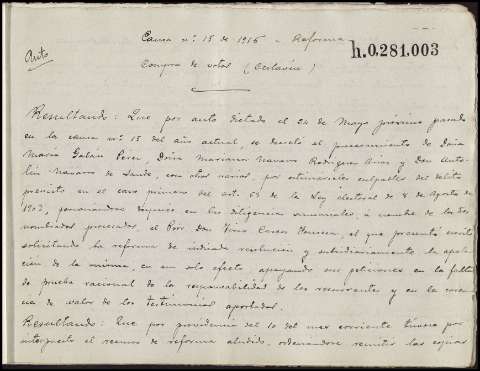 Causa nº 15 de 1916 - Reforma
h.0.281.003
Auto
Compra de votos
Resultando: Que por auto dictado el 24 de Mayo próximo pasado
en la causa nº 15 del año actual, se decretó el procesamiento de Doña
María Galán Pérez, Doña Mariana Navarro Rodríguez y Don
Navarro de con otros varios, por estimarles culpables del delito
previsto en el caso primero del art. de la Ley electoral de 8 de Agosto de
1907, personándose después en las diligencias sumariales, á nombre de los dos
nombrados procesados, el Proc. Don el que presentó escrito
solicitando la reforma de indicada resolución y subsidiariamente la apela-
ción de la misma, en un solo efecto, apoyando sus peticiones en la falta
de prueba racional de la responsabilidad de los recurrentes y en la caren-
cia de valor de los testimonios aportados.
Resultando: Que por providencia del 10 del mes corriente túvose por
interpuesto el recurso de reforma aludido, ordenándose remitir las copias